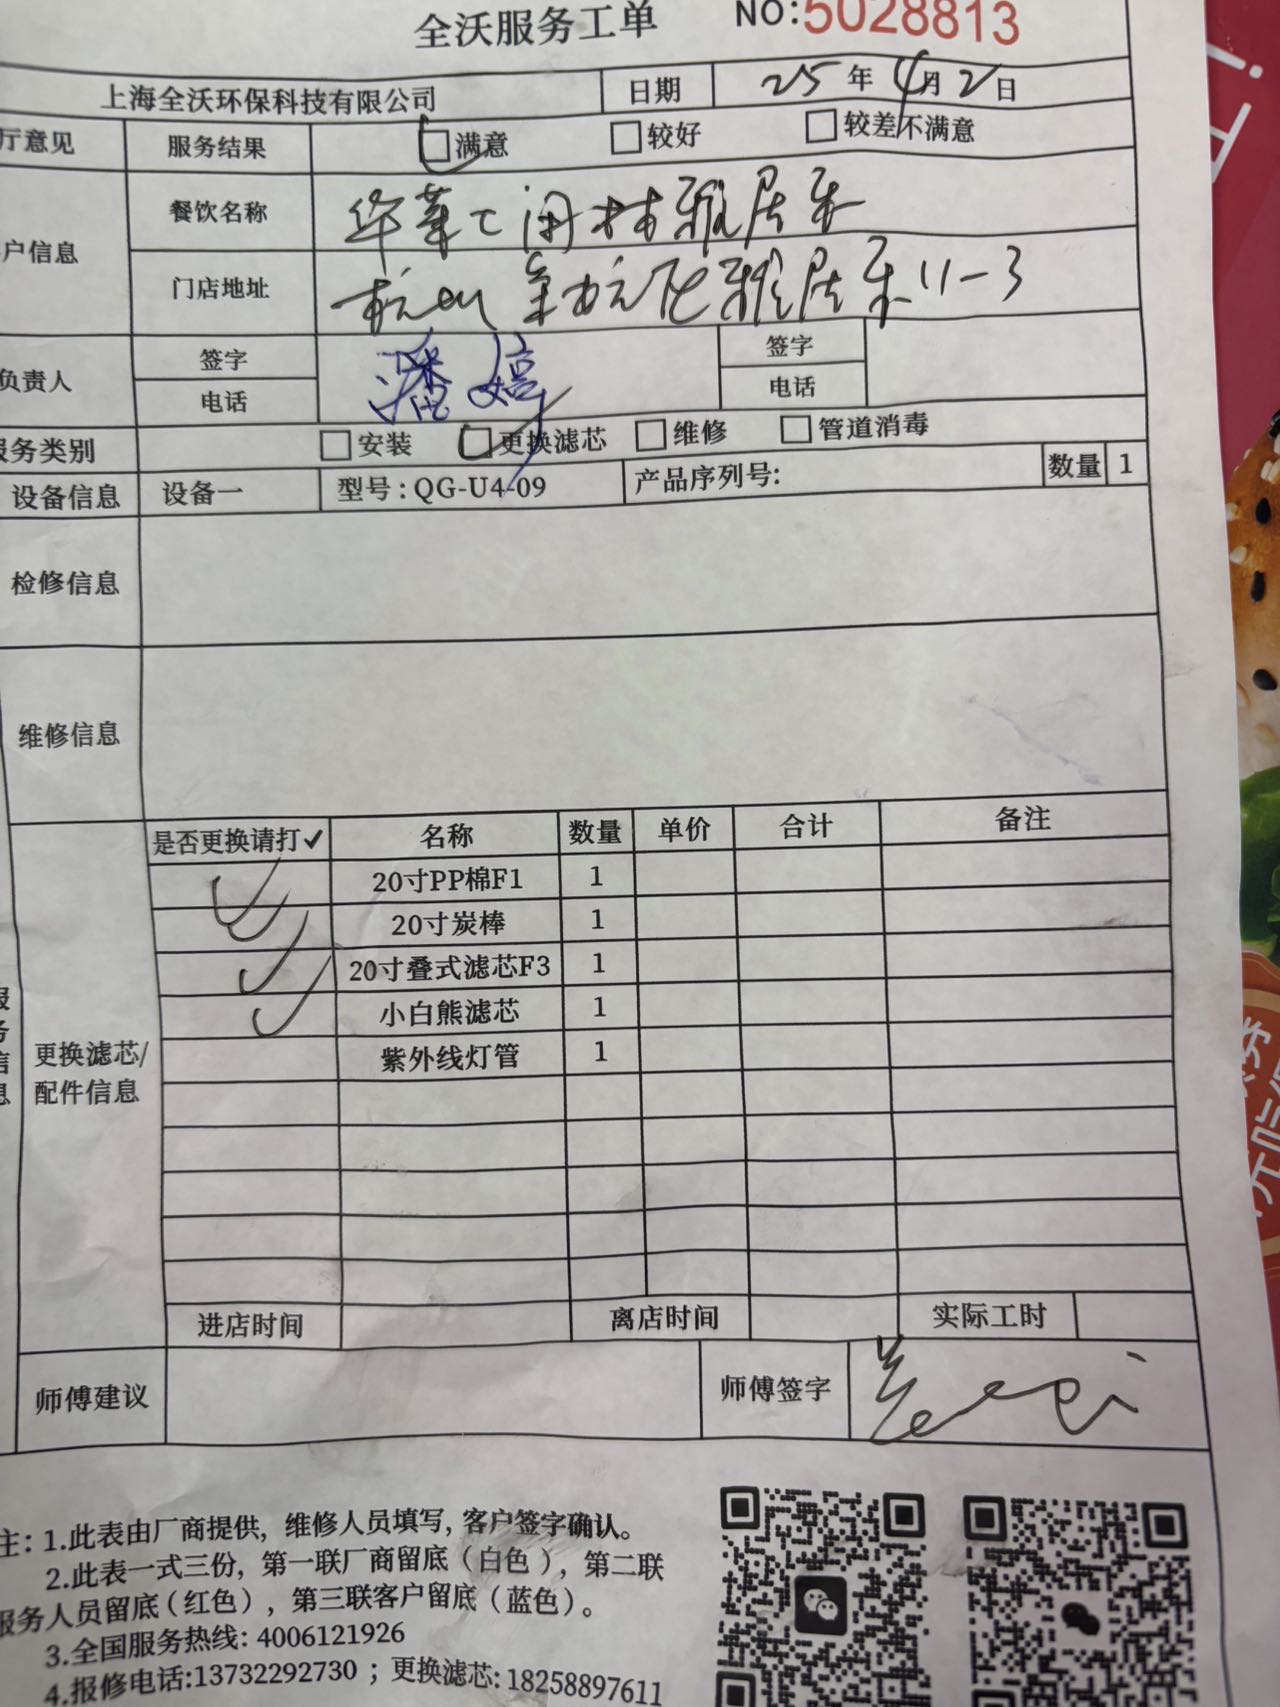 全沃服务工单 NO:5028813
上海全沃环保科技有限公司 日期 25年4月2日
厅意见 服务结果 满意 较好 较差不满意
户信息 餐饮名称 华莱士闲林雅居乐
门店地址 杭州余杭区雅居乐11-3
负责人 签字 潘婷 签字
电话 电话
服务类别 安装 更换滤芯 维修 管道消毒
设备信息 设备一 型号:QG-U4-09 产品序列号: 数量 1
检修信息
维修信息
是否更换请打✓ 名称 数量 单价 合计 备注
✓ 20寸PP棉F1 1
✓ 20寸炭棒 1
✓ 20寸叠式滤芯F3 1
✓ 小白熊滤芯 1
紫外线灯管 1
服务信息
更换滤芯/
配件信息
进店时间 离店时间 实际工时
师傅建议 师傅签字
注:1.此表由厂商提供,维修人员填写,客户签字确认。
2.此表一式三份,第一联厂商留底(白色),第二联
服务人员留底(红色),第三联客户留底(蓝色)。
3.全国服务热线:4006121926
4.报修电话:13732292730;更换滤芯:18258897611